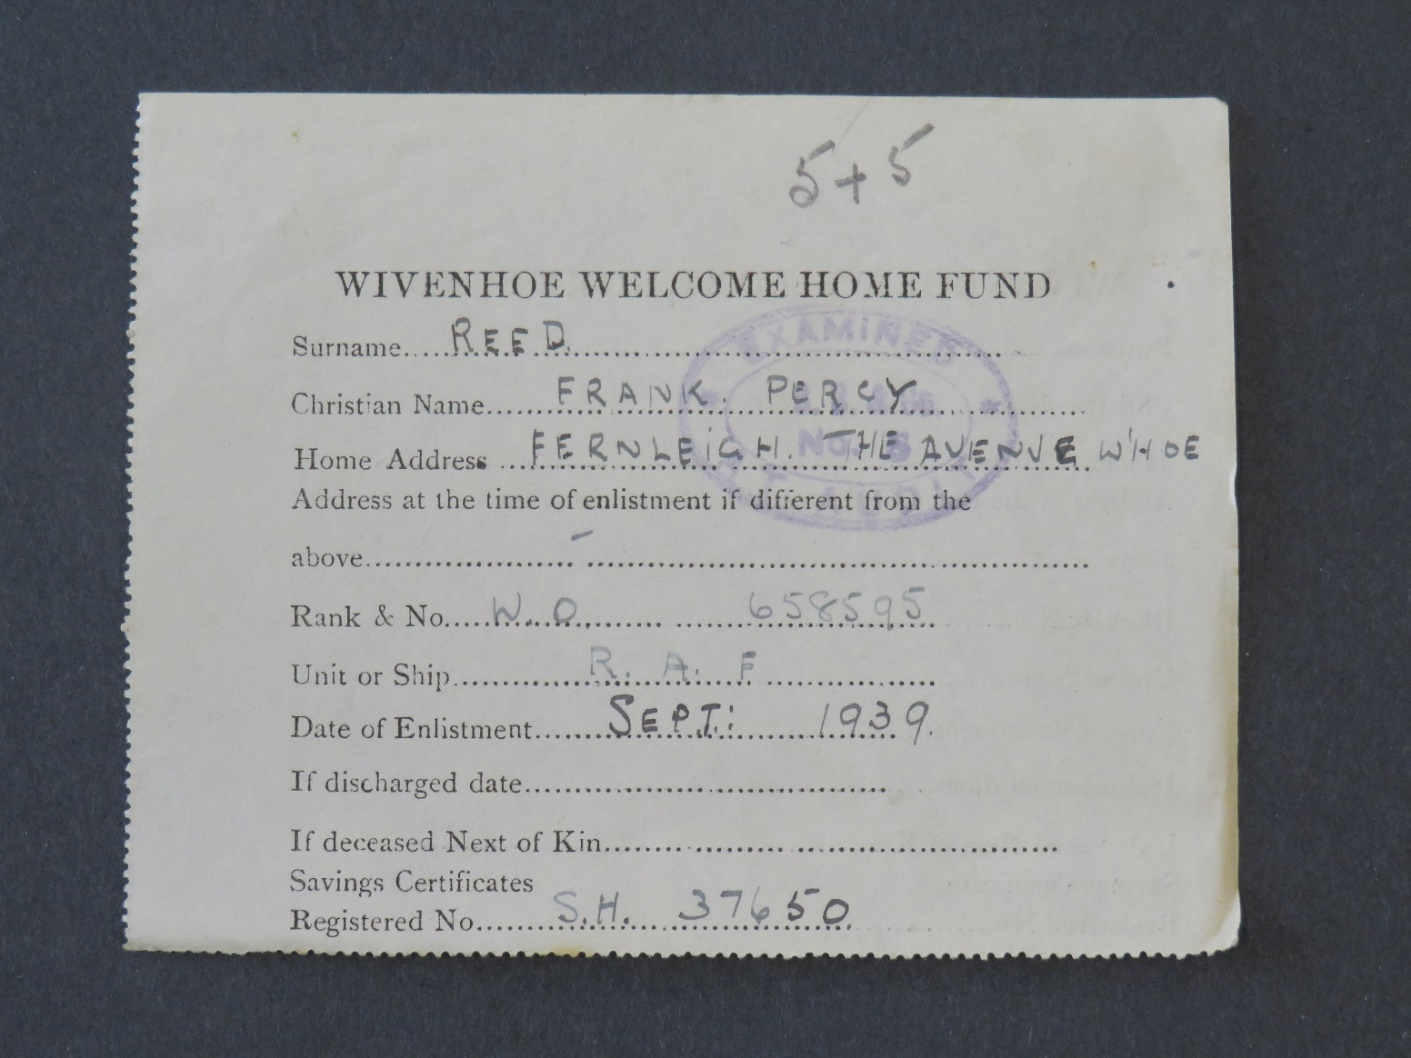 5 + 5
WIVENHOE WELCOME HOME FUND
Surname.....REED.
Christian Name.....FRANK. PERCY
Home Address ...FERNLEIGH. THE AVENUE W'HOE
Address at the time of enlistment if different from the
above..... - .....
Rank & No.....W.O. ..... 658595
Unit or Ship.....R. A. F
Date of Enlistment.....SEPT: 1939.
If discharged date.....
If deceased Next of Kin.....
Savings Certificates
Registered No.....S.H. 37650
EXAMINED